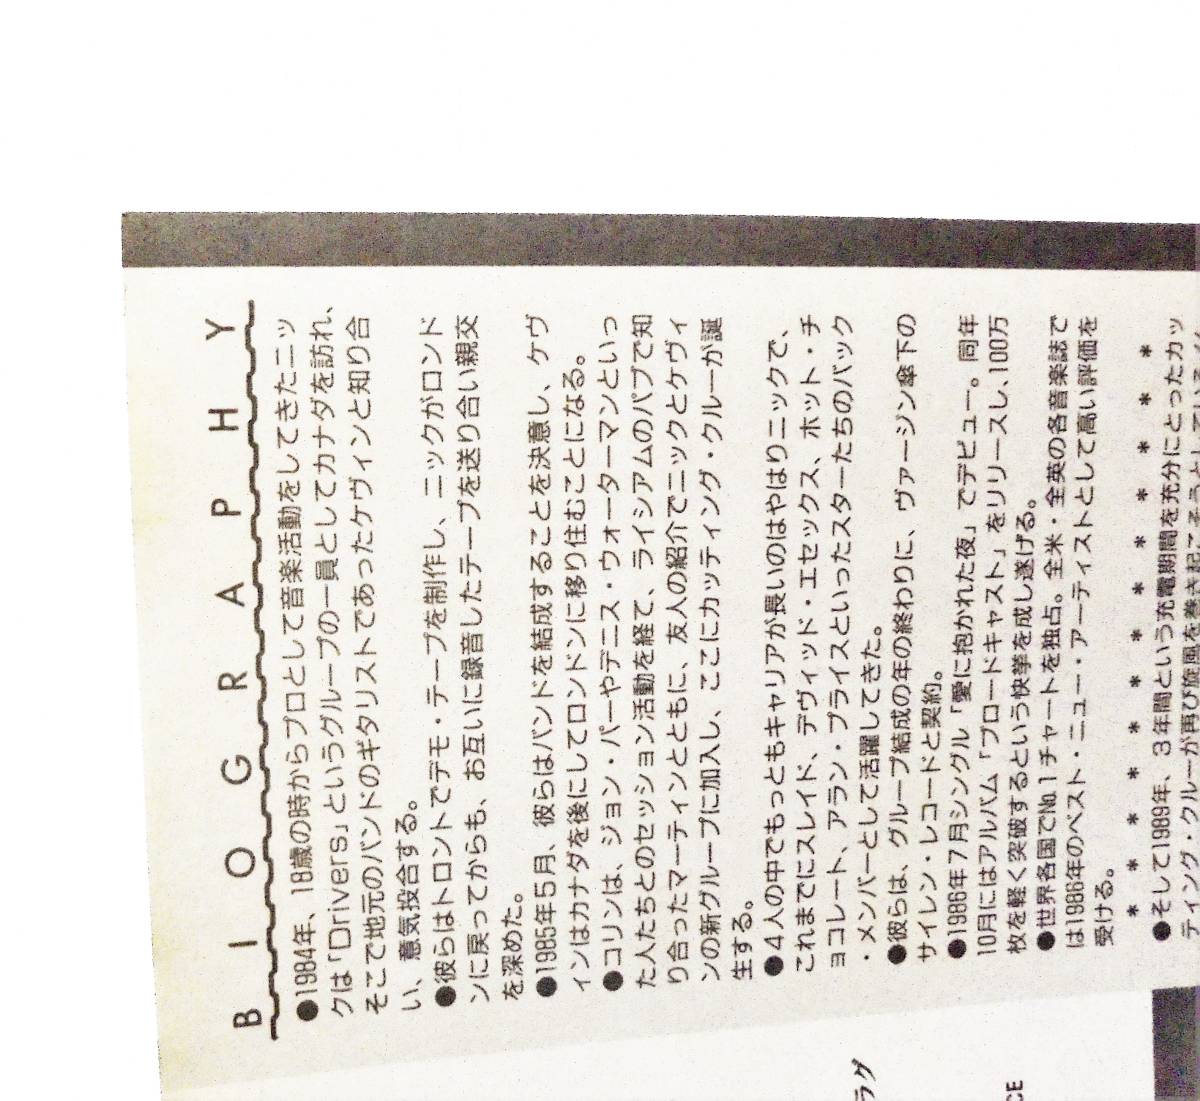 BIOGRAPHY
●1984年、18歳の時からプロとして音楽活動をしてきたニッ
クは「Drivers」というグループの一員としてカナダを訪れ、
そこで地元のバンドのギタリストであったケヴィンと知り合
い、意気投合する。
●彼らはトロントでデモ・テープを制作し、ニックがロンド
ンに戻ってからも、お互いに録音したテープを送り合い親交
を深めた。
●1985年5月、彼らはバンドを結成することを決意し、ケヴ
ィンはカナダを後にしてロンドンに移り住むことになる。
●コリンは、ジョン・パーやデニス・ウォーターマンといっ
た人たちとのセッション活動を経て、ライシアムのパブで知
り合ったマーティンとともに、友人の紹介でニックとケヴィ
ンの新グループに加入し、ここにカッティング・クルーが誕
生する。
●4人の中でもっともキャリアが長いのはやはりニックで、
これまでにスレイド、デヴィッド・エセックス、ホット・チ
ョコレート、アラン・プライスといったスターたちのバック
・メンバーとして活躍してきた。
●彼らは、グループ結成の年の終わりに、ヴァージン傘下の
サイレン・レコードと契約。
●1986年7月シングル「愛に抱かれた夜」でデビュー。同年
10月にはアルバム「ブロードキャスト」をリリースし、100万
枚を軽く突破するという快挙を成し遂げる。
●世界各国でNo.1チャートを独占。全米・全英の各音楽誌で
は1986年のベスト・ニュー・アーティストとして高い評価を
受ける。
＊＊＊＊＊＊＊＊＊＊＊＊＊
●そして1989年、3年間という充電期間を充分にとったカッ
ティング・クルーが再び旋風を巻き起こそうとしている
ラグ
CE